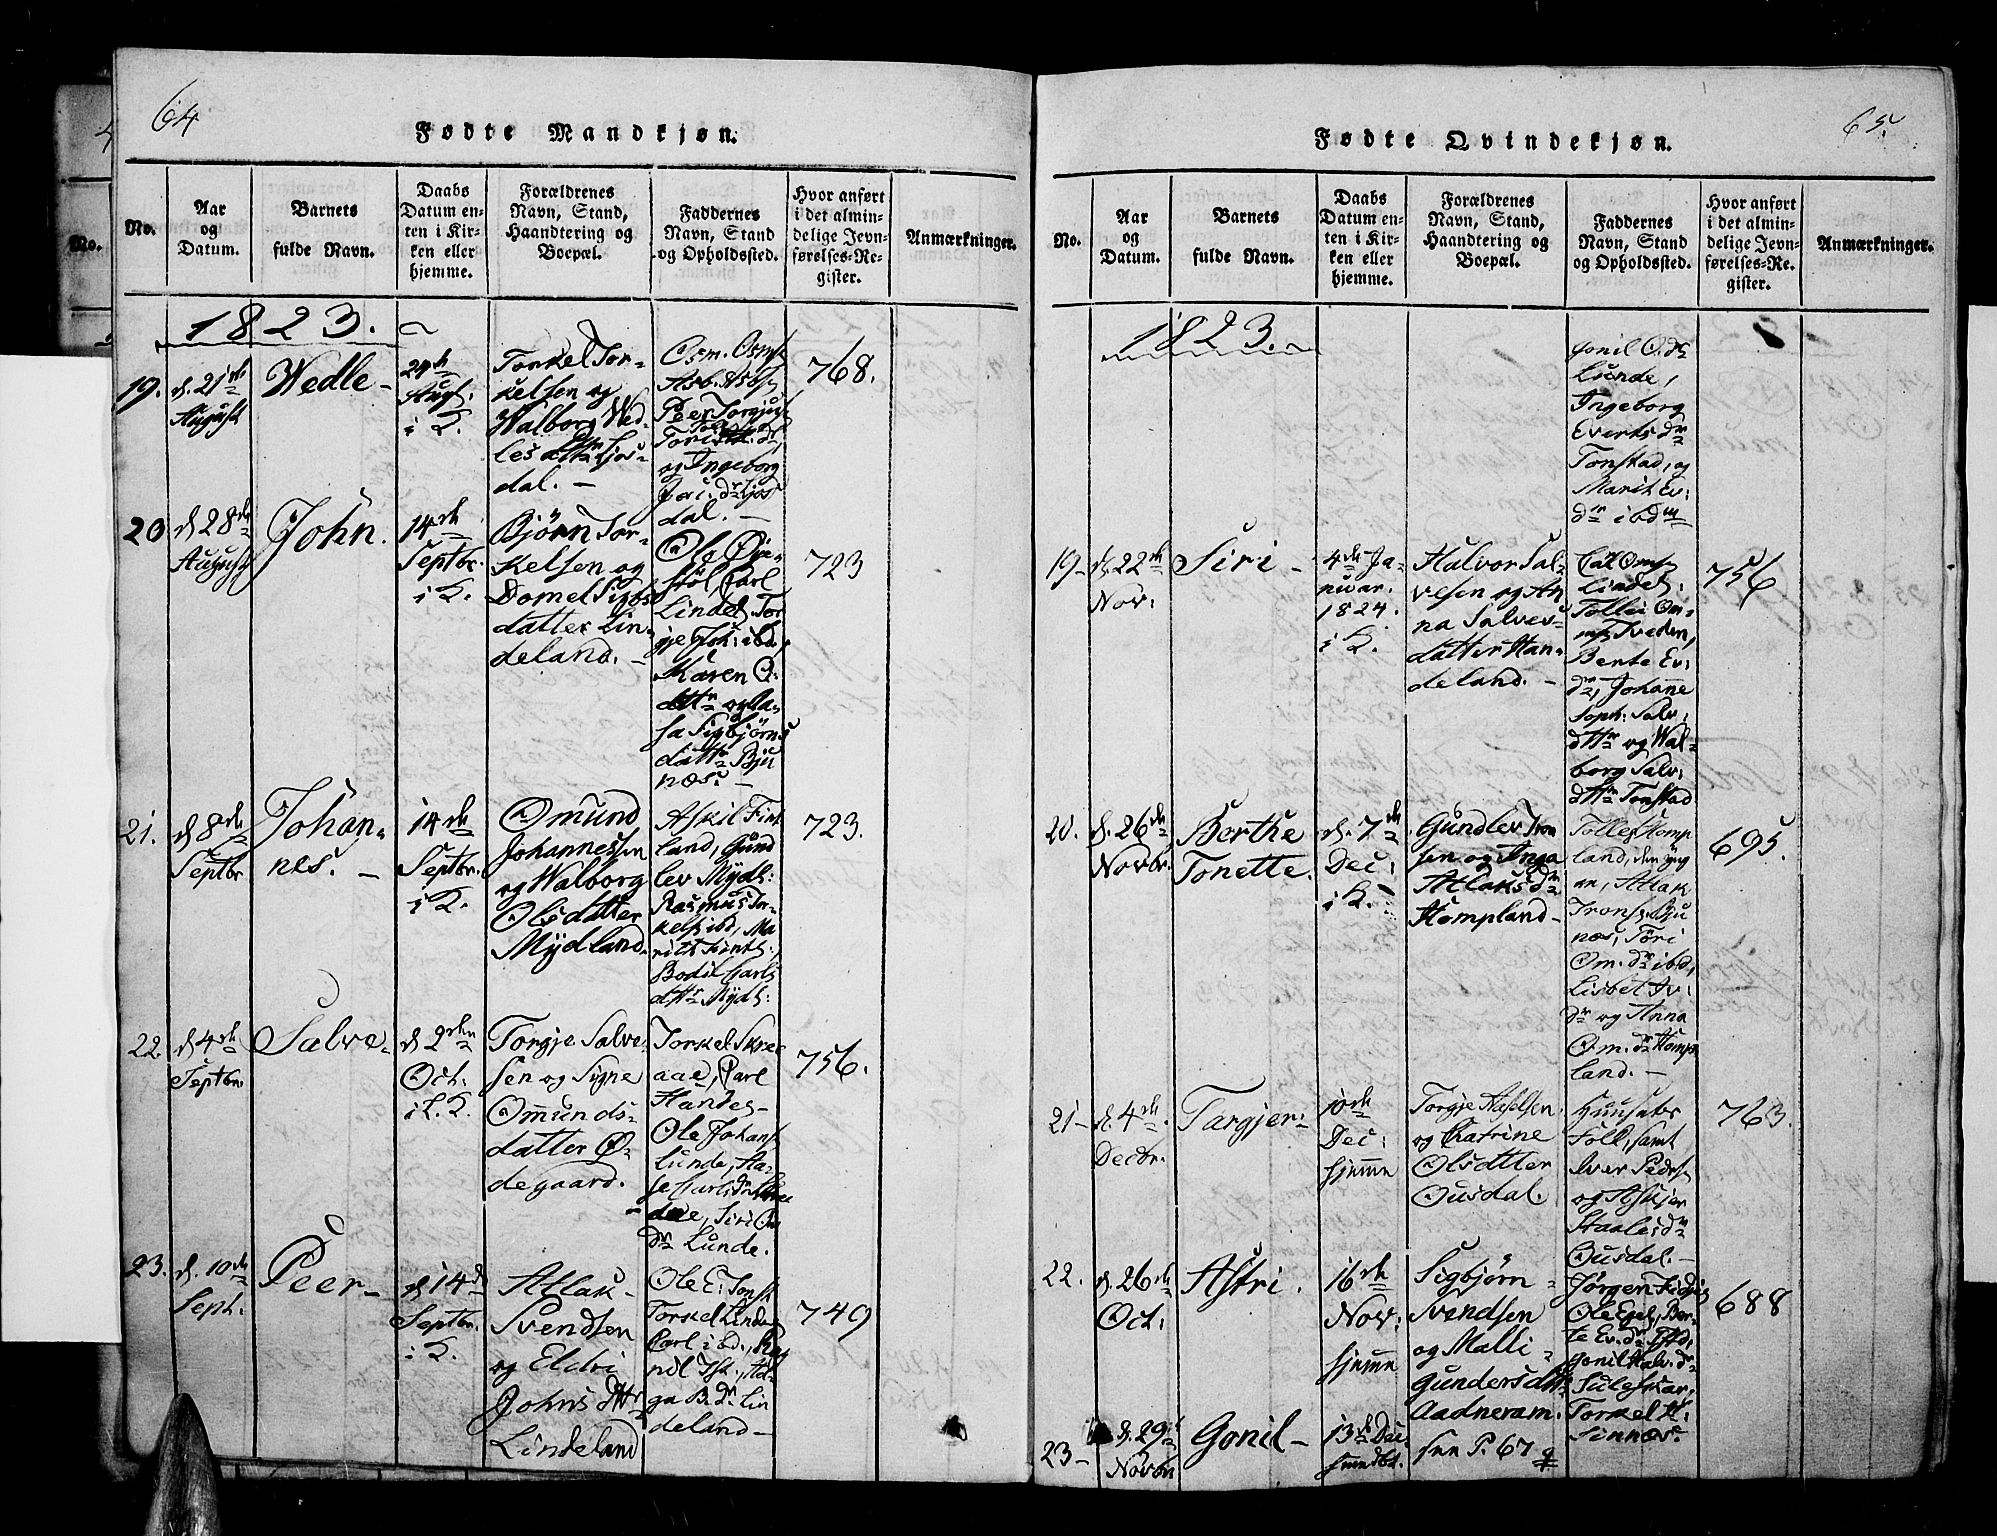 64
Fødte Mandkjøn.
No.
Aar
og
Datum.
Barnets
fulde Navn.
Daabs
Datum en-
ten i Kir-
ken eller
hjemme.
Forældrenes
Navn, Stand,
Haandtering og
Boepæl.
Faddernes
Navn, Stand
og Opholdssted.
Hvor anført
i det almin-
delige Jevn-
førelses-Re-
gister.
Anmærkninger.
1823.
19.
d. 21de
August
Wedle
24de
Augt.
i K.
Torkel Tor-
kelsen og
Walborg Wed-
les
dal.
Osm. Osms
Asb. Asbs
Peer Torgjus
og Ingeborg
dal.
768.
20
d 28de
August
John.
14de
Septbr.
i K.
Bjørn Tor-
kelsen og
Dornel Sigbs
datter Lin-
deland.
Carl
Lindel. Tor
Karen O.
sa Sigbjørns
dattr Bju
næs.
723
21.
d 8de
Septbr
Johan-
nes.
14de
Septbr.
i K.
Omund
Johannessen
og Walborg
Olsdatter
Mydland.
Askil Fint
land, Gund
lev Mydl:
Rasmus Tor-
kels ibd, Ma
rit Fintl:,
Bodil Carls
dttr Mydl:
723.
22.
d 4de
Septbr.
Salve
d 2den
Oct.
i L. K.
Torgje Salve-
sen og Signe
Omunds-
datter Ø-
degaard.
Torkel Skree
aae, Carl
Handel-
Ole Johans
Lunde,
Siri Om
dr Lunde.
756.
23.
d. 10de
Sept.
Peer
d 14de
Septbr.
i K.
Atlak
Svendsen
og Eldri
Johns dttr
Lindeland
Ole E. Tonst
Torkel Linde
Carl ibd.,
ga B. dr Lin
deland
749
65.
Fødte Qvindekjøn.
No.
Aar
og
Datum.
Barnets
fulde Navn.
Daabs
Datum en-
ten i Kir-
ken eller
hjemme.
Forældrenes
Navn, Stand,
Haandtering og
Boepæl.
Faddernes
Navn, Stand
og Opholdssted.
Hvor anført
i det almin-
delige Jevn-
førelses-Re-
gister.
Anmærkninger.
1823.
Gonil O. dr
Lunde,
Ingeborg
Everts dr
Tonstad, og
Marit Ev:
dr ibdm
19
d. 22de
Nov:
Siri
4de Ja-
nuar.
1824.
i K.
Halvor Sal-
vesen og An
na Salves-
datter Han-
deland.
Carl Oms
Lindel:
Tollei Om-
Tveden,
Berte Ev:
dr, Johanne
Soph: Salv:
dttr og Wal-
borg Salv:
dttr Tonstad
756
20.
d. 26de
Novbr.
Berthe
Tonette.
d. 7de
Dec:
i K.
Gundlev Tron
sen og Inga
Atlaks dr
Hompland
Tolles Homp
land, den yng
Atlak
Trons. Bju
næs, Tori
Om. dr ibd,
Lisbet Iv:
dr og Anna
Om. dr Homp
land.
695.
21
d. 4de
Decbr.
Targjer
10de
Dec:
hjemme
Torgje Aselsen
og Catrine
Olsdtter
Ousdal.
Huusets
Folk, samt
Iver Peders
og Askjer
Staalesdr
Ousdal.
763.
22.
d. 26de
Oct:
Astri.
16de
Nov:
hjemme
Sigbjørn
Svendsen
og Malli
Gundersdttr
Aadneram.
Jørgen Fidjeg
Ole Egel, Ber-
te Ev. dr
Gonil Halv. dr
Suleskar,
Torkel H:
Sinnæs.
688
23
d. 29
Novbr
Gonil
13de Dec.
P. 67